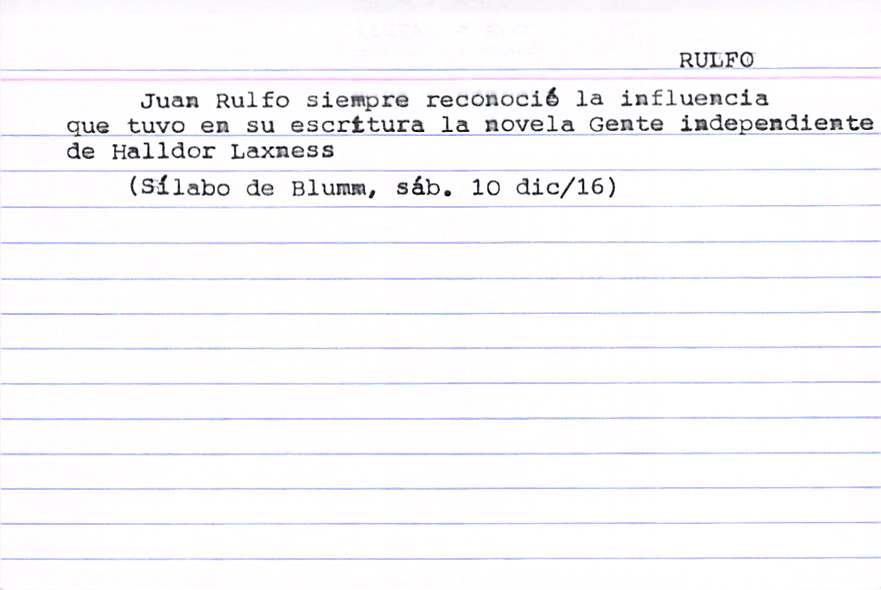 RULFO
Juan Rulfo siempre reconoció la influencia
que tuvo en su escritura la novela Gente independiente
de Halldor Laxness
(Sílabo de Blumm, sáb. 10 dic/16)